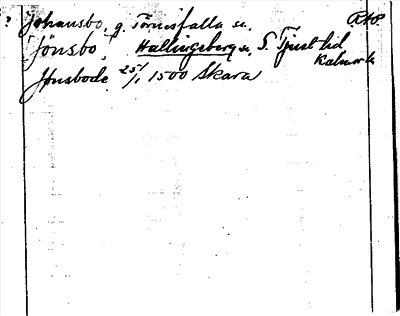 ? Johansbo, g. Törnesfalla sn. RAP
Jönsbo, Hallingeberg sn, S. Tjust hd
Kalmar l.
Jönsbode 25/1 1500 Skara